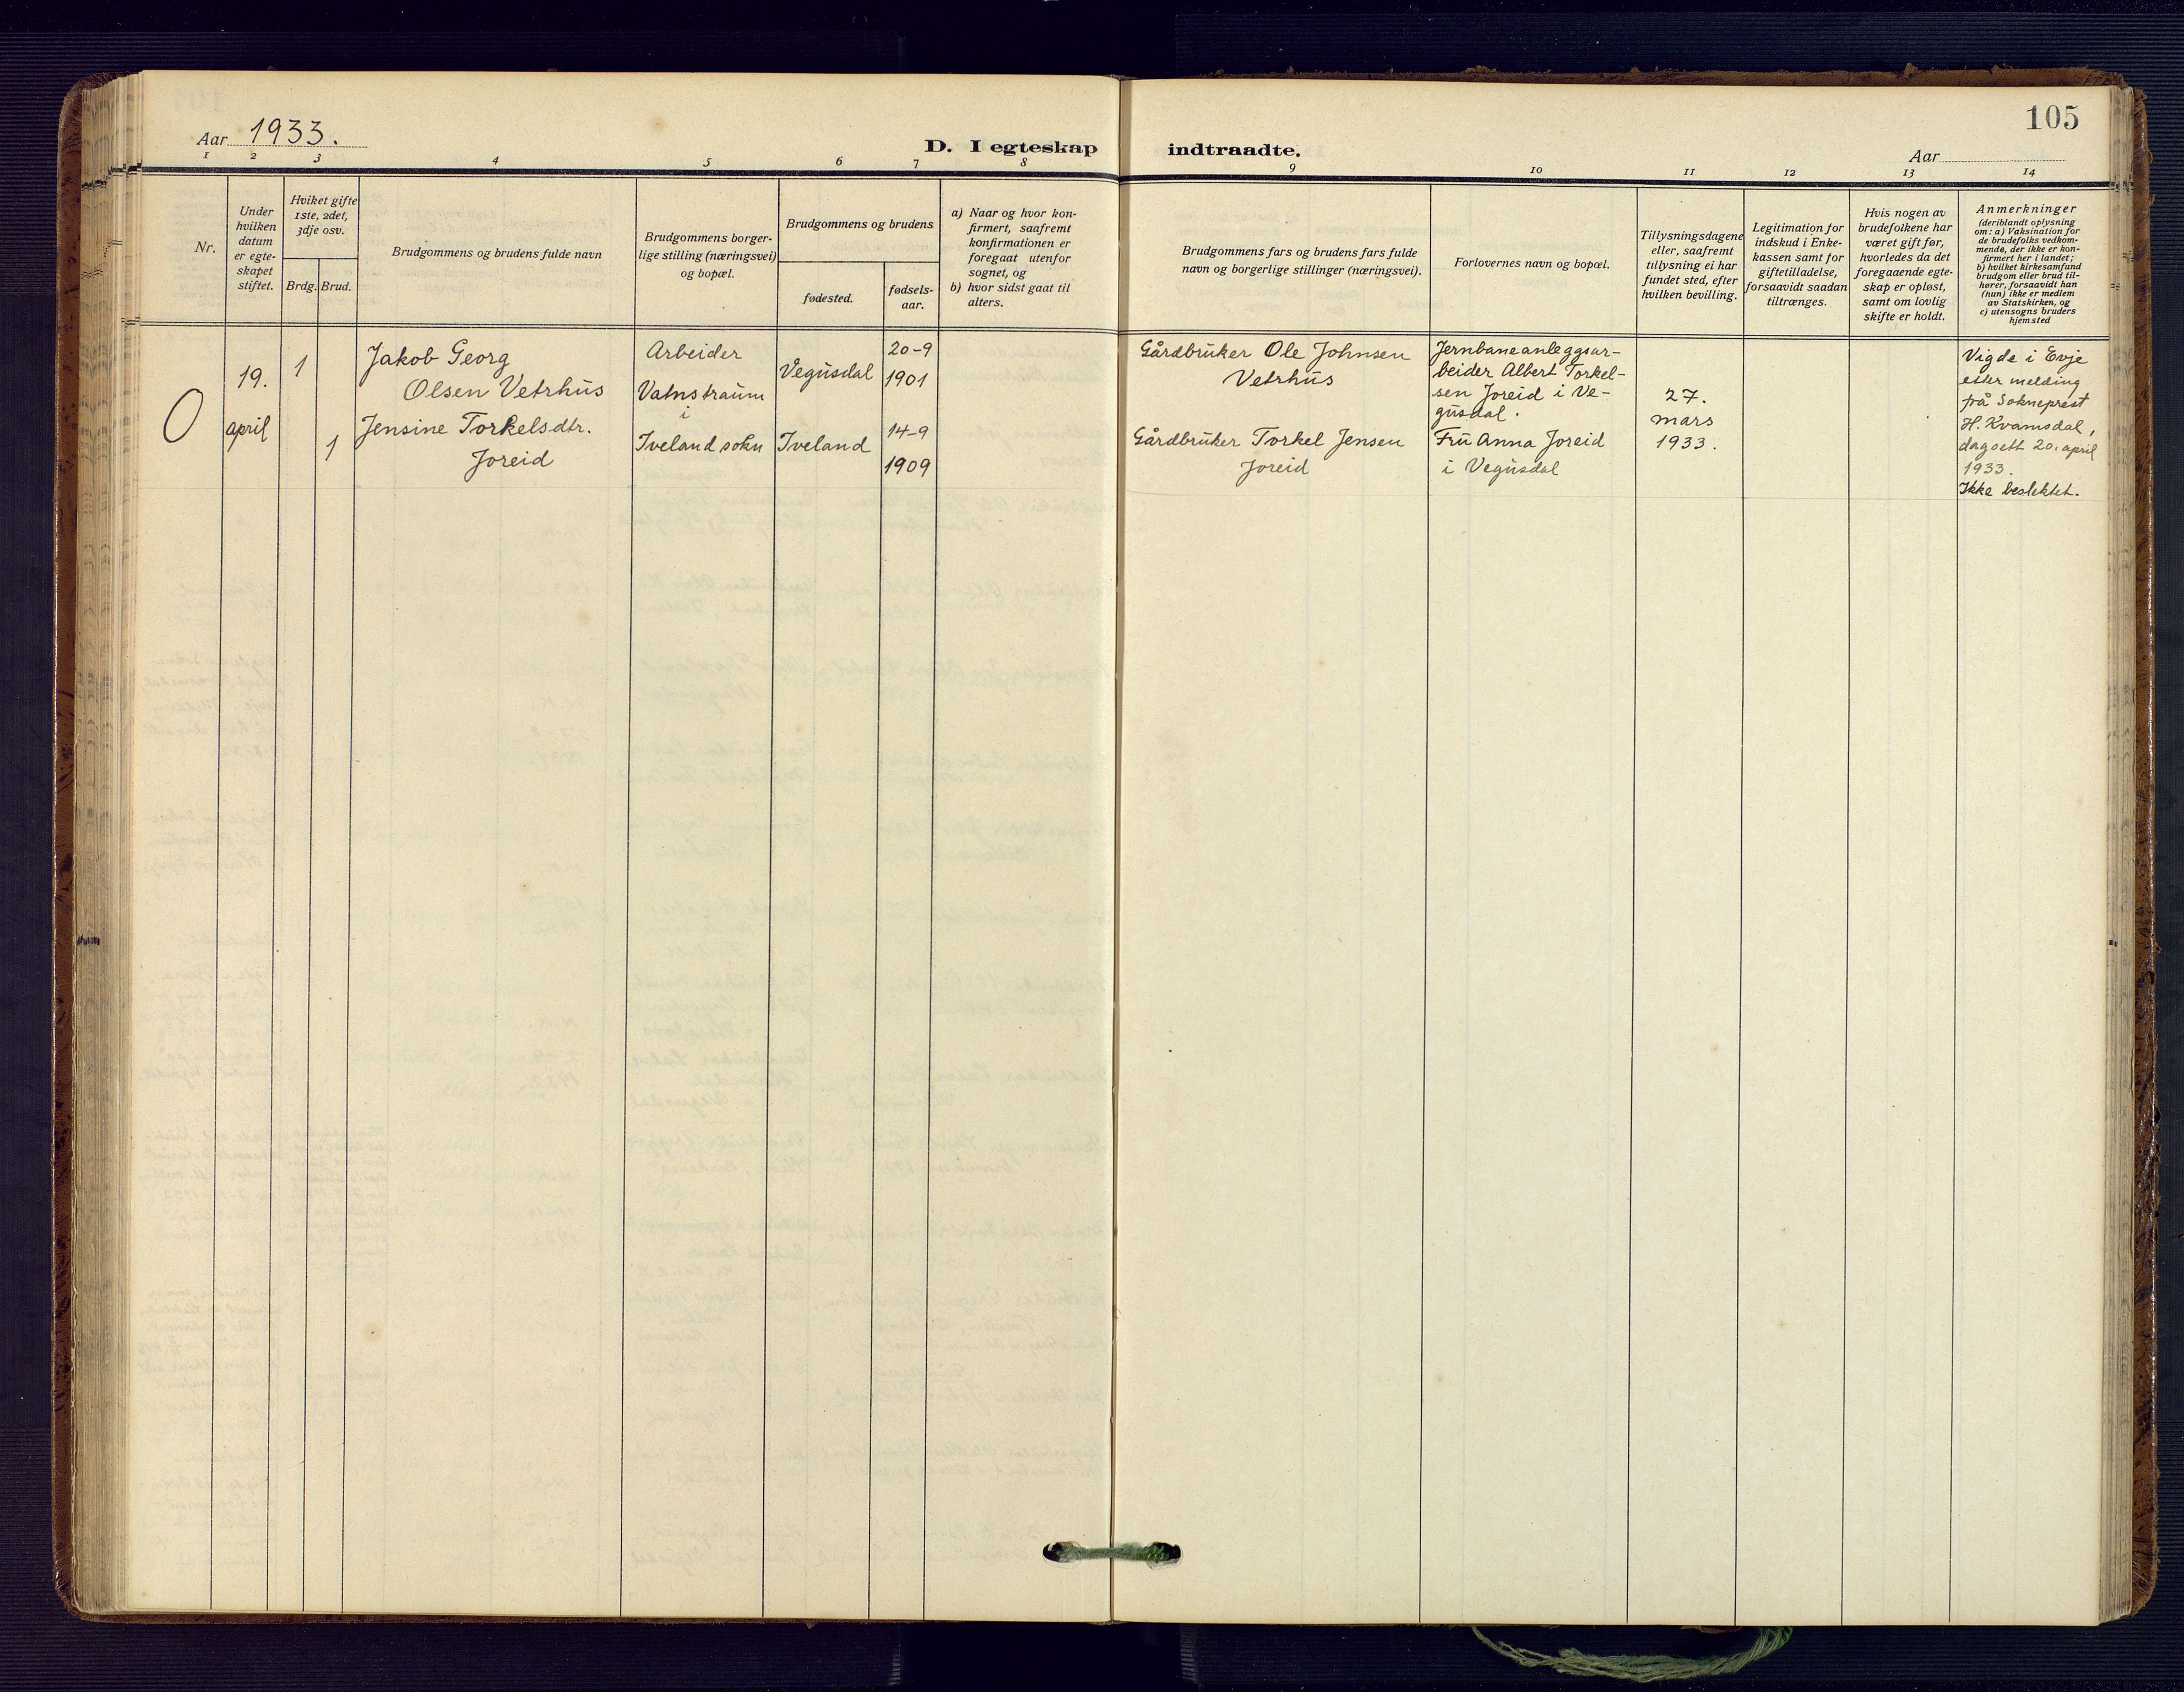 105
Aar 1933.
D. I egteskap indtraadte.
Aar
1 2 3 4 5 6 7 8 9 10 11 12 13 14
Nr.
Under
hvilken
datum
er egte-
skapet
stiftet.
Hviket gifte
1ste, 2det,
3dje osv.
Brdg. Brud.
Brudgommens og brudens fulde navn
Brudgommens borger-
lige stilling (næringsvei)
og bopæl.
Brudgommens og brudens
fødested.
fødsels-
aar.
a) Naar og hvor kon-
firmert, saafremt
konfirmationen er
foregaat utenfor
sognet, og
b) hvor sidst gaat til
alters.
Brudgommens fars og brudens fars fulde
navn og borgerlige stillinger (næringsvei).
Forlovernes navn og bopæl.
Tillysningsdagene
eller, saafremt
tillysning ei har
fundet sted, efter
hvilken bevilling.
Legitimation for
indskud i Enke-
kassen samt for
giftetilladelse,
forsaavidt saadan
tiltrænges.
Hvis nogen av
brudefolkene har
været gift før,
hvorledes da det
foregaaende egte-
skap er opløst,
samt om lovlig
skifte er holdt.
Anmerkninger
(deriblandt oplysning
om: a) Vaksination for
de brudefolks vedkom-
mende, der ikke er kon-
firmert her i landet;
b) hvilket kirkesamfund
brudgom eller brud til-
hører, forsaavidt han
(hun) ikke er medlem
av Statskirken, og
c) utensogns bruders
hjemsted
0
19.
april
1
1
Jakob Georg
Olsen Vetrhus
Jensine Torkelsdtr.
Joreid
Arbeider
Vatnstraum
i
Iveland sokn
Vegusdal
Iveland
20-9
1901
14-9
1909
Gårdbruker Ole Johnsen
Vetrhus
Gårdbruker Torkel Jensen
Joreid
Jernbaneanleggsar-
beider Albert Torkel-
sen Joreid i Ve-
gusdal.
Fru Anna Joreid
i Vegusdal
27.
mars
1933.
Vigde i Evje
etter melding
på Sokneprest
H. Kvamsdal,
dagsett 20. april
1933.
Ikke beslektet.